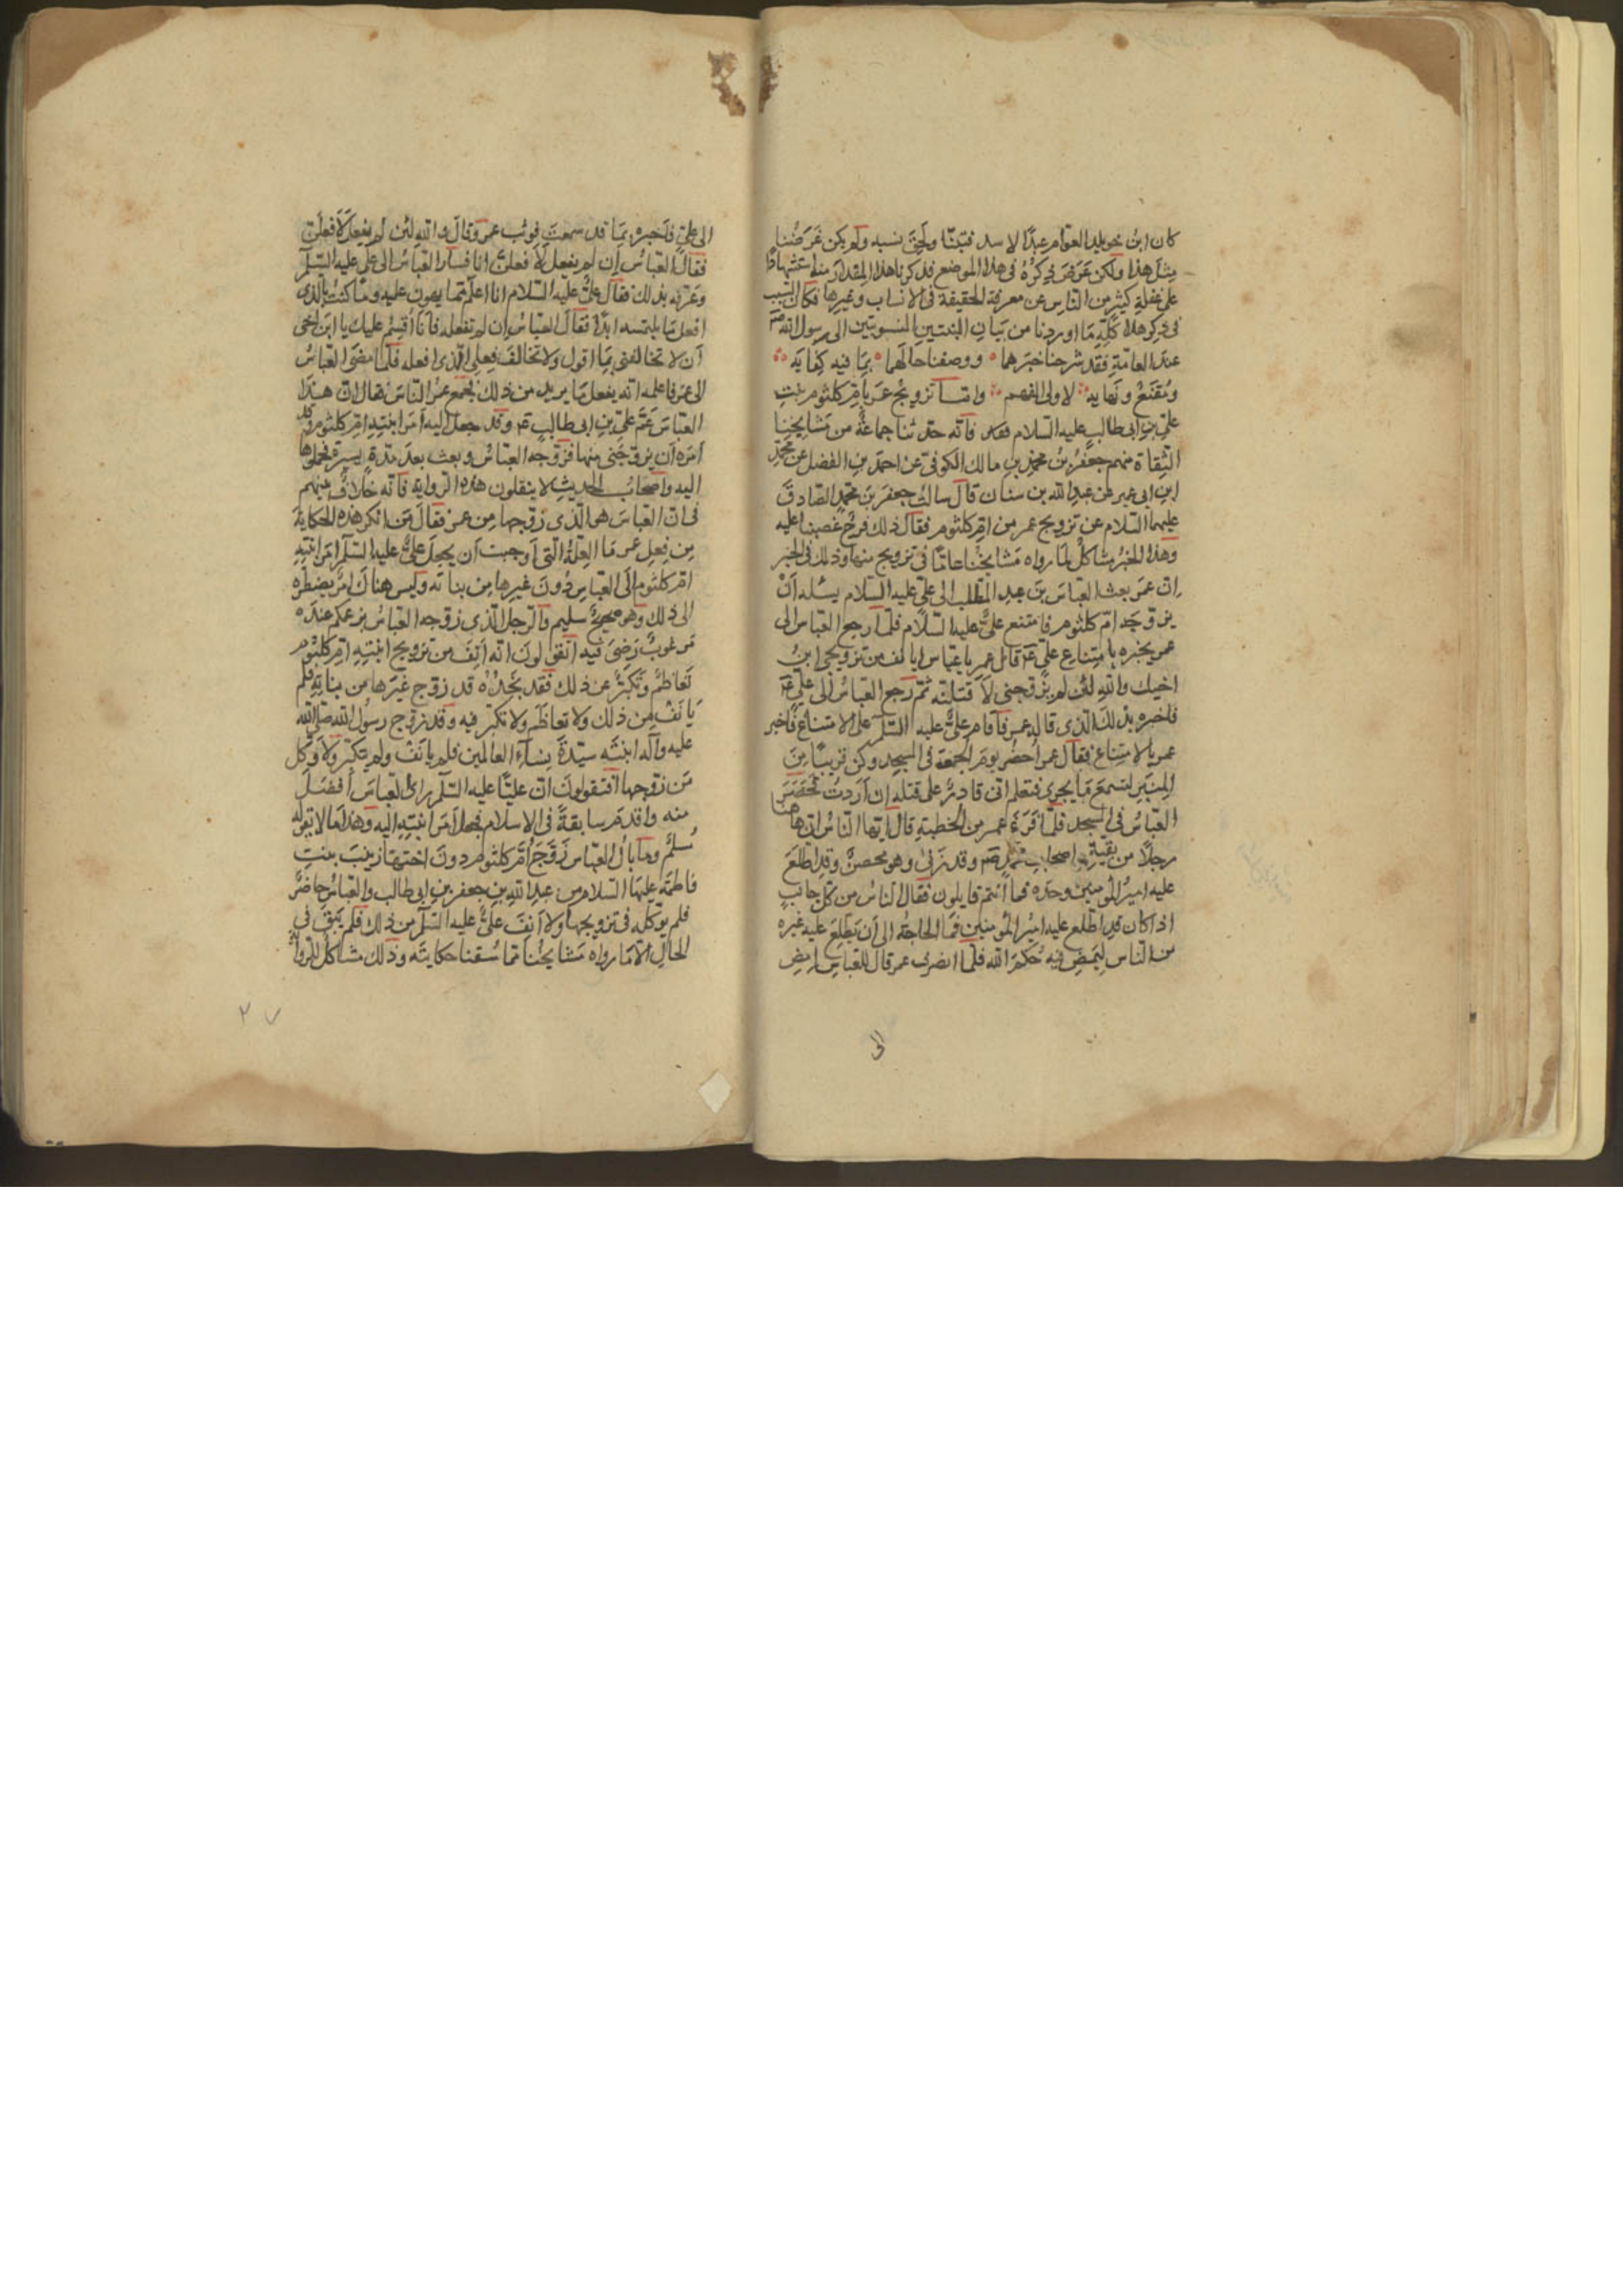 كان ابنُ خويلد العوّام عبدًا لاسد فتبنّا ولحِقَ بنسبه ولم يكن غَرَضُنا
مِثلَ هذا ولكن عَرَضَ ذِكرُهُ فى هذا الموضع فذكرنا هذا المِقدارَ منه استشهادًا
على غفلةِ كثيرٍ من النّاس عن معرفة الحقيقة فى الانساب وغيرِها فكان السّبب
فى ذِكرِ هذا كُلِّهِ مَا اوردنا من بَيانِ البنتين المنسوبتين الى رسول الله صم
عندَ العامّةِ فقد شرحنا خبَرهما ووصفنا حالَهما بمَا فيه كفايَه
ومَقنَعٌ ونَهايه لاولى الفهم وامّا تزويجُ عمَر بِاُمّ كلثوم بنتِ
علىّ بنِ ابى طالبٍ عليه السّلام فانّه حدّثنا جماعةٌ من مَشايخِنا
الثِّقاة منهم جعفرُ بنُ محمّدِ بنِ مالك الكوفىّ عن احمدَ بنِ الفضل عن محمّدِ
ابنِ ابى عمير عن عبدِ الله بن سنان قالَ سالتُ جعفرَ بنَ محمّدٍ الصّادقَ
عليهما السّلام عن تزويج عمر من امّ كلثوم فقال ذلك فرجٌ غصبنا عليه
وهذا الخبرُ مشاكلٌ لما رواه مَشايخُنا عامّةً فى تزويج منها وذلك فى الخبر
انّ عمَر بعث العبّاسَ بنَ عبدِ المطّلب الى علىّ عليه السّلام يسئله اَنْ
يزوّجه امّ كلثوم فامتنع علىٌّ عليه السّلام فلمّا رجع العبّاس الى
عمر يخبره بامتناع علىّ ع‍م قال عمر يا عبّاس ايانف من تزويجى ابنُ
اخيك والله لئن لم يزوّجنى لاَقتلنّه ثمّ رجع العبّاسُ الى علىّ ع‍م
فاخبره بذلك الّذى قاله عمر فاقام علىٌّ عليه السّلم على الامتناع فاخبر
عمر بالامتناع فقال عمر اُحضُر يومَ الجمعة فى المسجدِ وكن قريبًا مِنَ
المِنبَرِ لتسمعَ مَا يجرى فتعلم انّى قادرٌ على قتله اِن اَردتُ فحضَرَ
العبّاسُ فى المسجد فلمّا فَرَغَ عمر من الخطبةِ قال ايّها النّاسُ انّ هاهنا
رجلًا من بقيّة اصحابِ محمّد صم وقد زنى وهو محصنٌ وقد اطّلعَ
عليه اميرُ المؤمنين وحدَه فمَا اَنتم قايلون فقال النّاسُ من كلّ جانبٍ
اذا كان قد اطّلع عليه اميرُ المؤمنين فمَا الحاجةُ الى اَن يَطّلِعَ عليه غيرُه
من النّاس لِيَمضِ فيه حُكمَ الله فلمّا انصرف عمر قال للعبّاس اِمضِ
الى
الى علىّ فاخبره بمَا قد سمعتَ فوثب عمر وقال والله لئن لم يفعل لاَفعلنّ
فقال العبّاسُ ان لم يفعل لاَفعلنّ انا فسار العبّاسُ الى علىّ عليه السّلم
وعرّفه بذلك فقال علىٌّ عليه السّلام انا اعلم ممّا يهون عليه ومَا كنتُ بالّذى
افعل مَا يلتمسه ابدًا فقال العبّاسُ ان لم تفعله فانا اُقسِمُ عليك يا ابنَ اخى
اَن لا تخالفنى بمَا اقول ولا تخالفَ فِعلى الّذى افعله فلمّا مضَى العبّاسُ
الى عمَر فاعلمه انّه يفعل مَا يريد من ذلك فجمع عمرُ النّاسَ فقال انّ هذا
العبّاسَ عَمّ علىّ بنِ ابى طالبٍ ع‍م وقد جعل اليه اَمرَ ابنتِهِ امّ كلثوم وقد
اَمَره اَن يزوّجنى منها فزوّجه العبّاسُ وبعث بعدَ مدّةٍ يسيرةٍ فحملوها
اليه واصحابُ الحديثِ لا ينقلون هذه الرّوايه فانّه خِلافٌ منهم
فى انّ العبّاسَ هو الّذى زوّجها من عمر فقالَ مَن انكر هذه الحكايةَ
مِن فِعلِ عمر مَا العِلّةُ الّتى اَوجبت اَن يجعلَ علىٌّ عليه السّلم اَمرَ ابنتِهِ
امّ كلثوم اِلى العبّاسِ دُونَ غيرِها مِن بناته وليس هناك اَمرٌ يضطرّه
الى ذلك وهو صحيحٌ سليم والرّجل الّذى زوّجه العبّاسُ بزعمكم عنده
مَرغوبٌ رَضىَ فيه اتقولونَ انّه اَنِفَ من تزويج ابنتِهِ امّ كلثوم
تَعاظمَ وتكبّر عن ذلك فقد نجدُه قد زوّج غيرَها من بناتِهِ فلم
يَانَفْ مِن ذلك ولا تعاظَم ولا تكبّر فيه وقد زوّج رسولُ الله صلّى الله
عليه وآله ابنتَه سيّدةَ نِساءِ العالمين فلم يانَفْ ولم يتكبّر ولا وكّل
مَن زوّجها افتقولونَ انّ عليًّا عليه السّلم راى العبّاسَ اَفضلَ
منه واقدمَ سابقةً فى الاسلام فجعلَ اَمرَ ابنتِهِ اليه وهذا مَا لا يقوله
مُسلمٌ ومَا بالُ العبّاس زَوّجَ اُمّ كلثوم دونَ اختِها زينَبَ بنتِ
فاطمةَ عليها السّلام من عبدِ اللهِ بنِ جعفر بنِ ابى طالب والعبّاسُ حاضرٌ
فلم يوكّله فى تزويجها ولا اَنِفَ علىٌّ عليه السّلم من ذلك فلم يَبقَ فى
الحالِ اِلّا مَا رواه مَشايخُنا ممّا سُقنا حكايتَه وذلك مشاكلٌ للرّوايه
٢٧